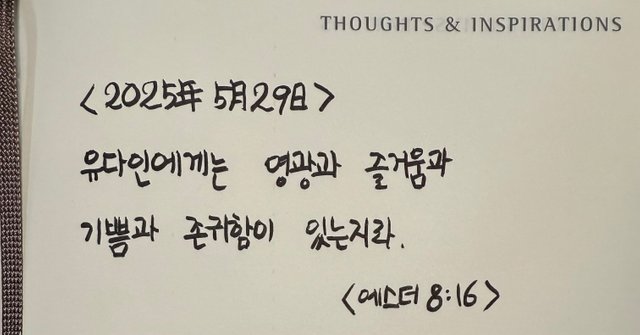 THOUGHTS & INSPIRATIONS
<2025年 5月 29日>
유다인에게는 영광과 즐거움과
기쁨과 존귀함이 있는지라.
<에스더 8:16>